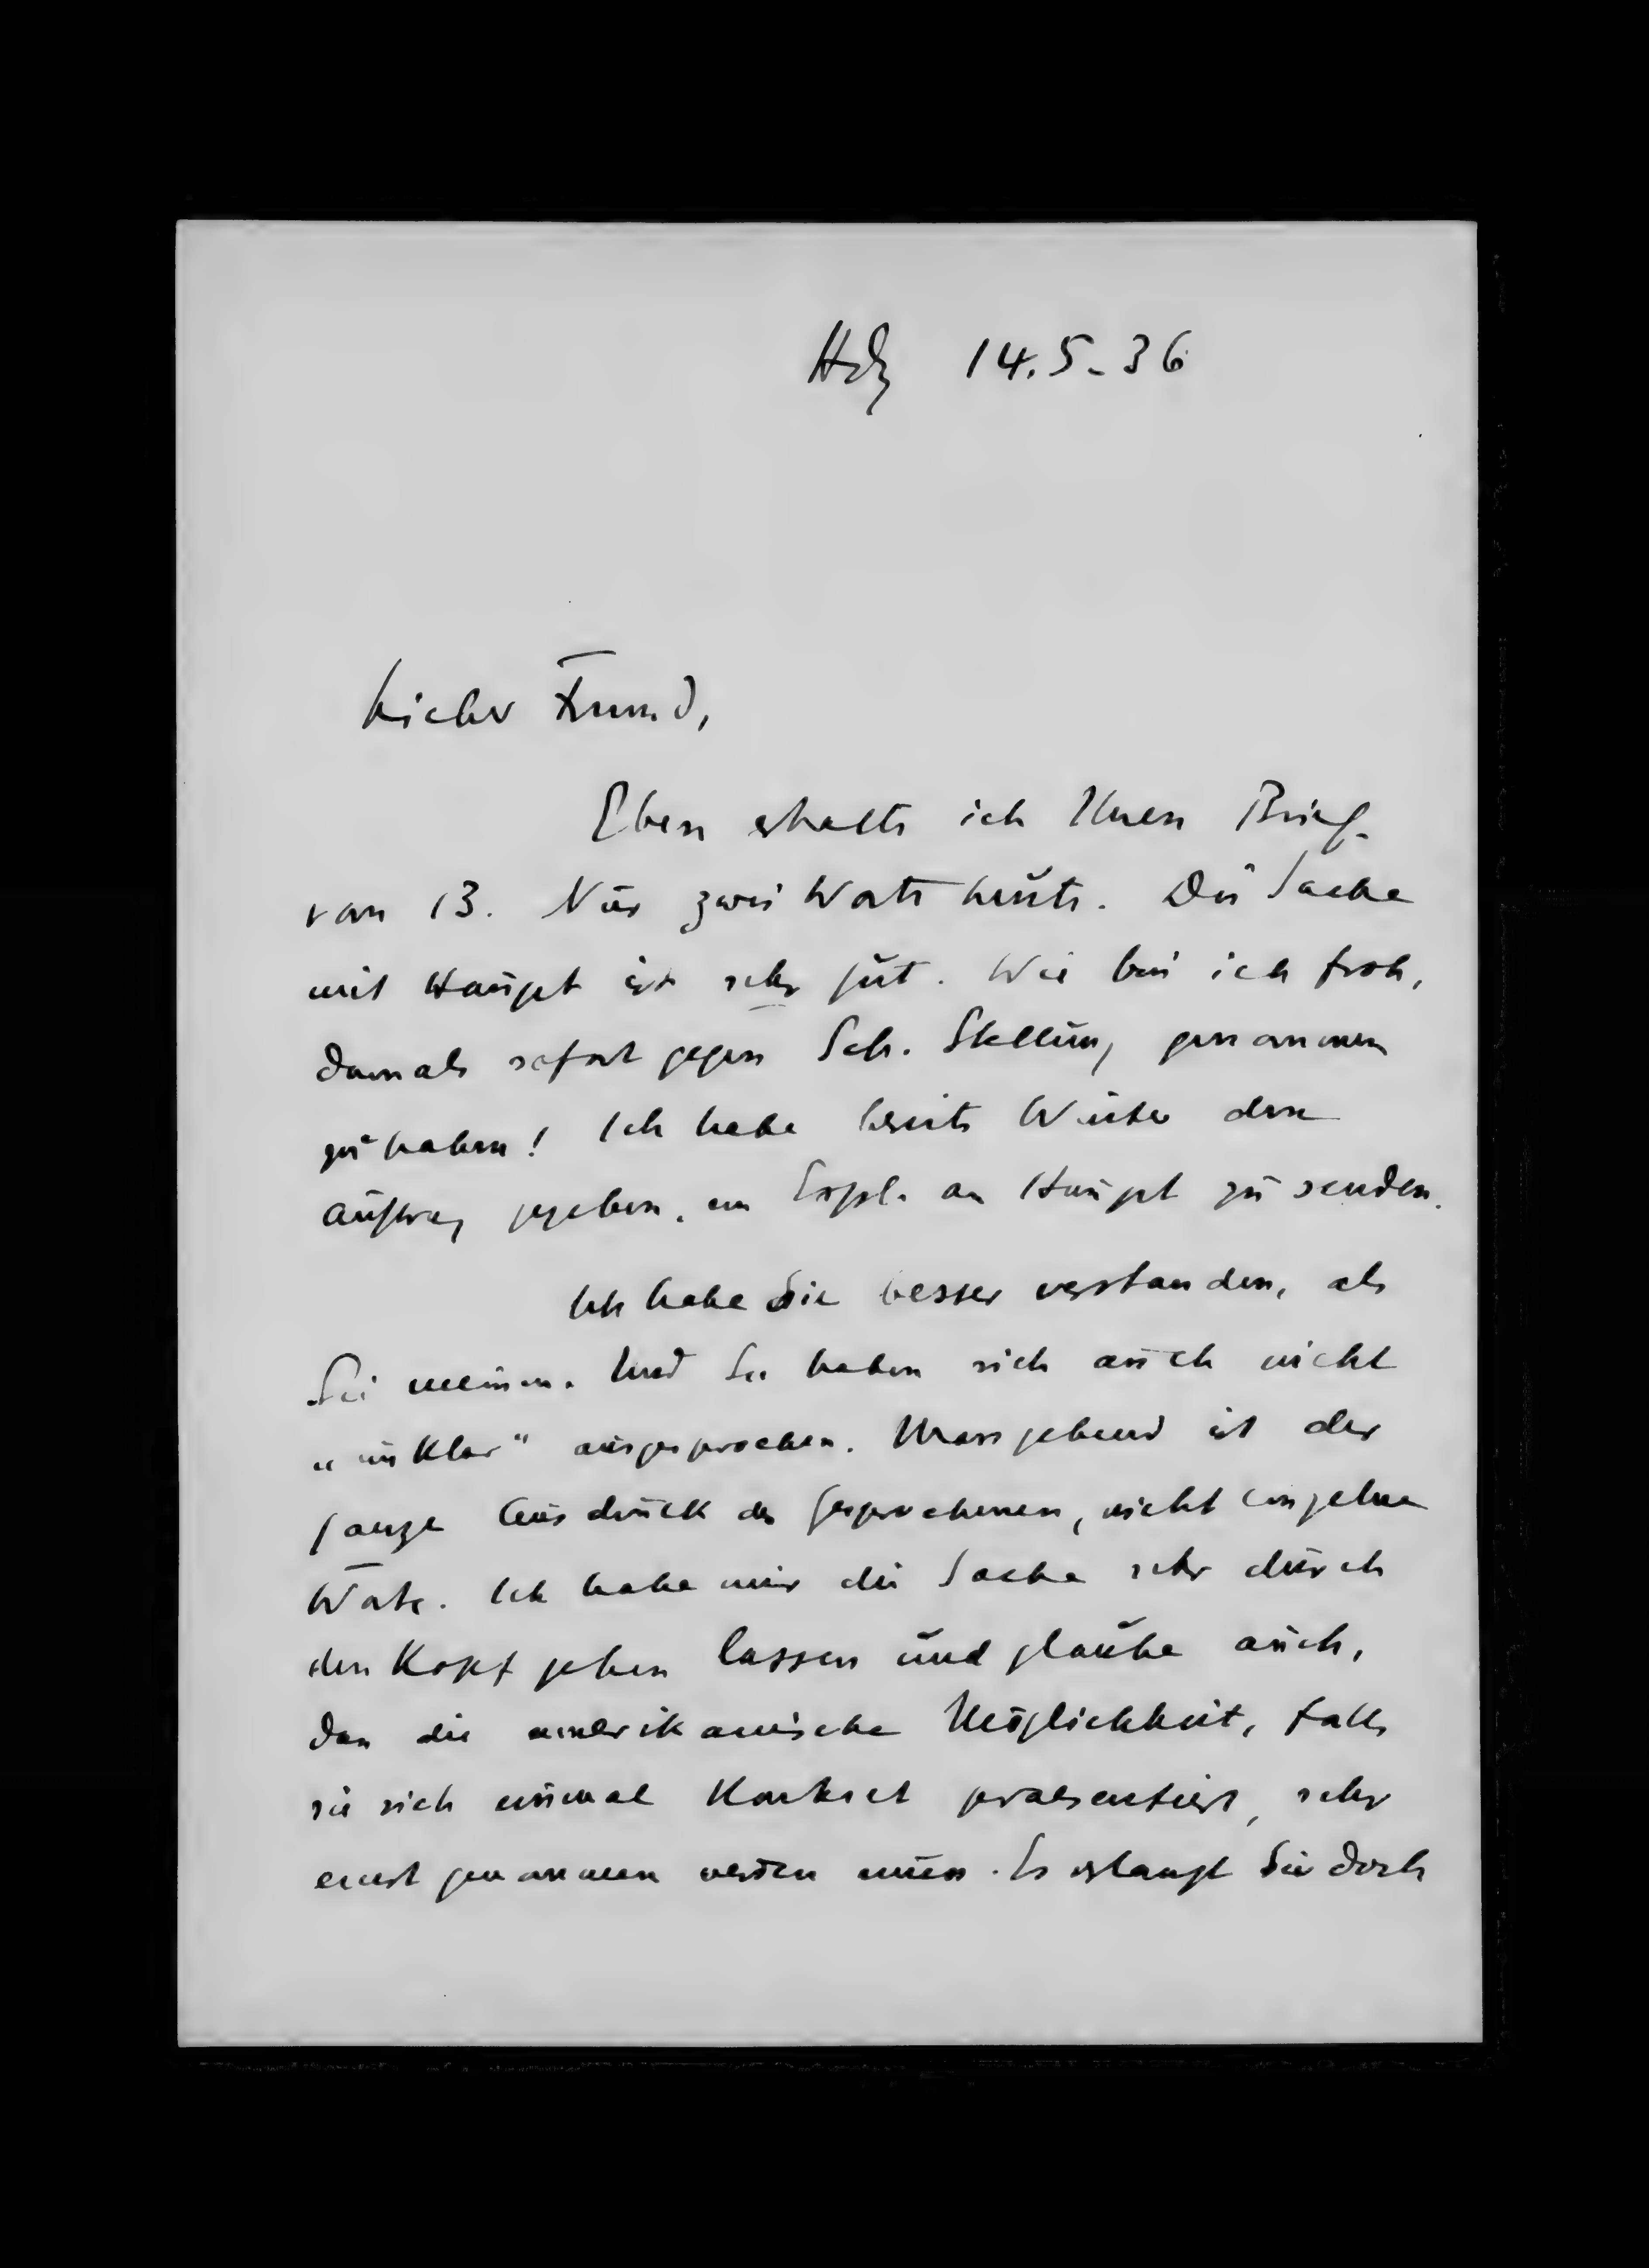 Hdg 14.5.36
Lieber Freund,
Eben erhalte ich Ihren Brief
vom 13. Nur zwei Worte heute. Die Sache
mit Haupt ist sehr gut. Wie bin ich froh,
damals sofort gegen Sch. Stellung genommen
zu haben! Ich habe bereits Winter den
Auftrag gegeben, ein Expl. an Haupt zu senden.
Ich habe Sie besser verstanden, als
Sie meinen. Und Sie haben sich auch nicht
„unklar" ausgesprochen. Massgebend ist der
ganze Ausdruck des Gesprochenen, nicht einzelne
Worte. Ich habe mir die Sache sehr durch
den Kopf gehen lassen und glaube auch,
dass die amerikanische Möglichkeit, falls
sie sich einmal konkret praesentiert, sehr
ernst genommen werden muss. Es erlangt Sie doch